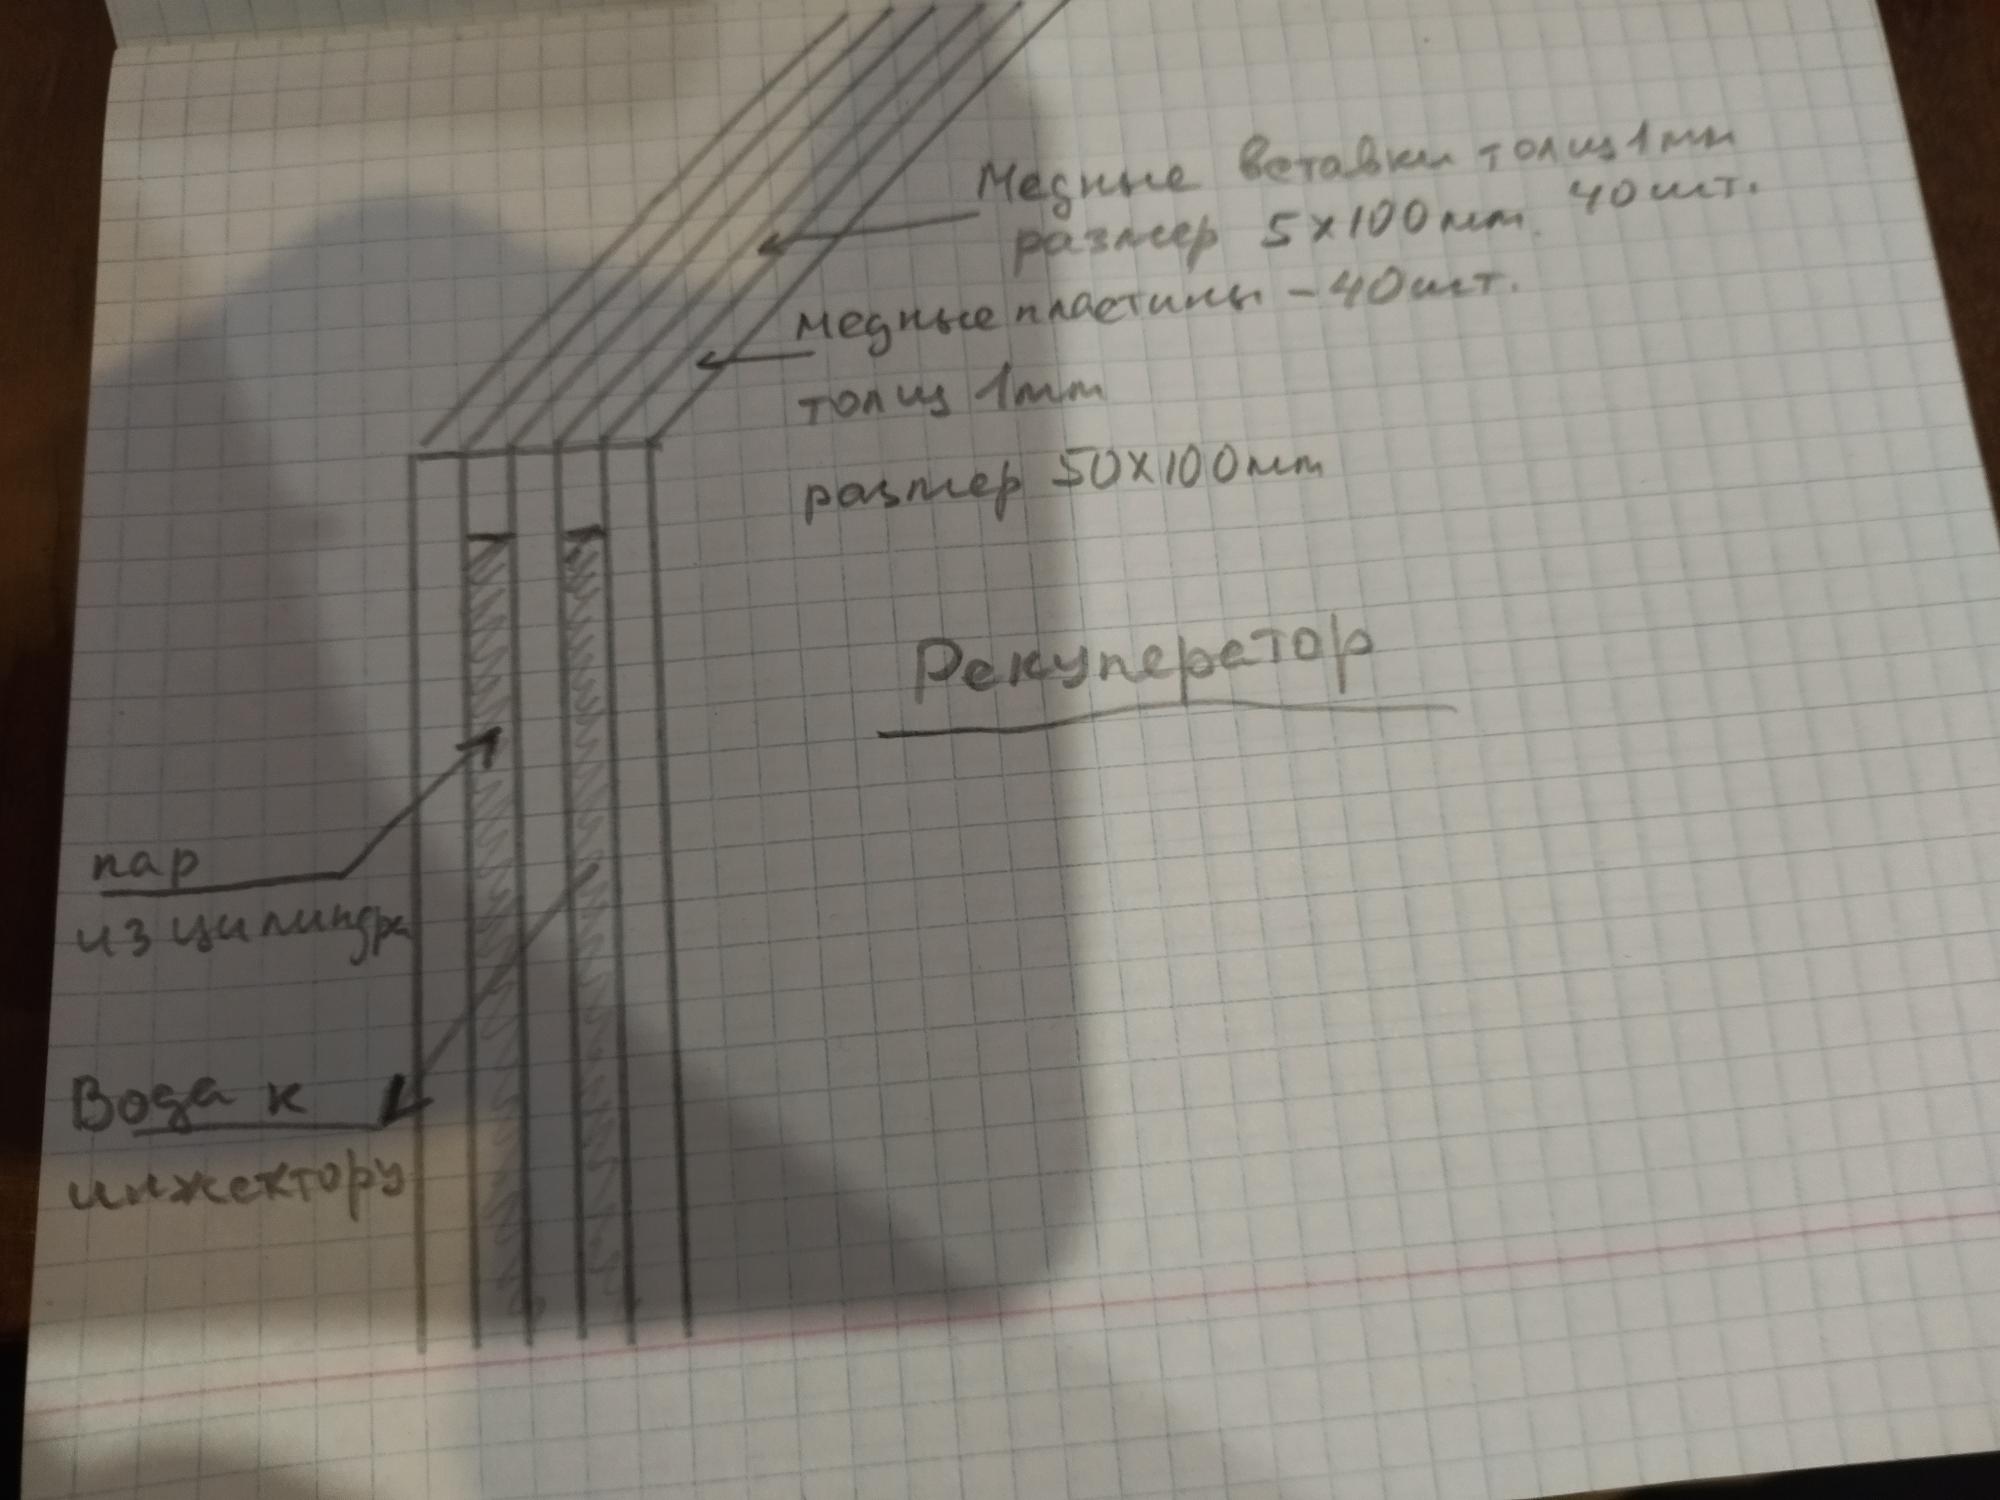 Медные вставки толщ 1мм
размер 5х100мм. 40шт.
медные пластины - 40шт.
толщ 1мм
размер 50х100мм
Рекуператор
пар
из цилиндра
Вода к
инжектору